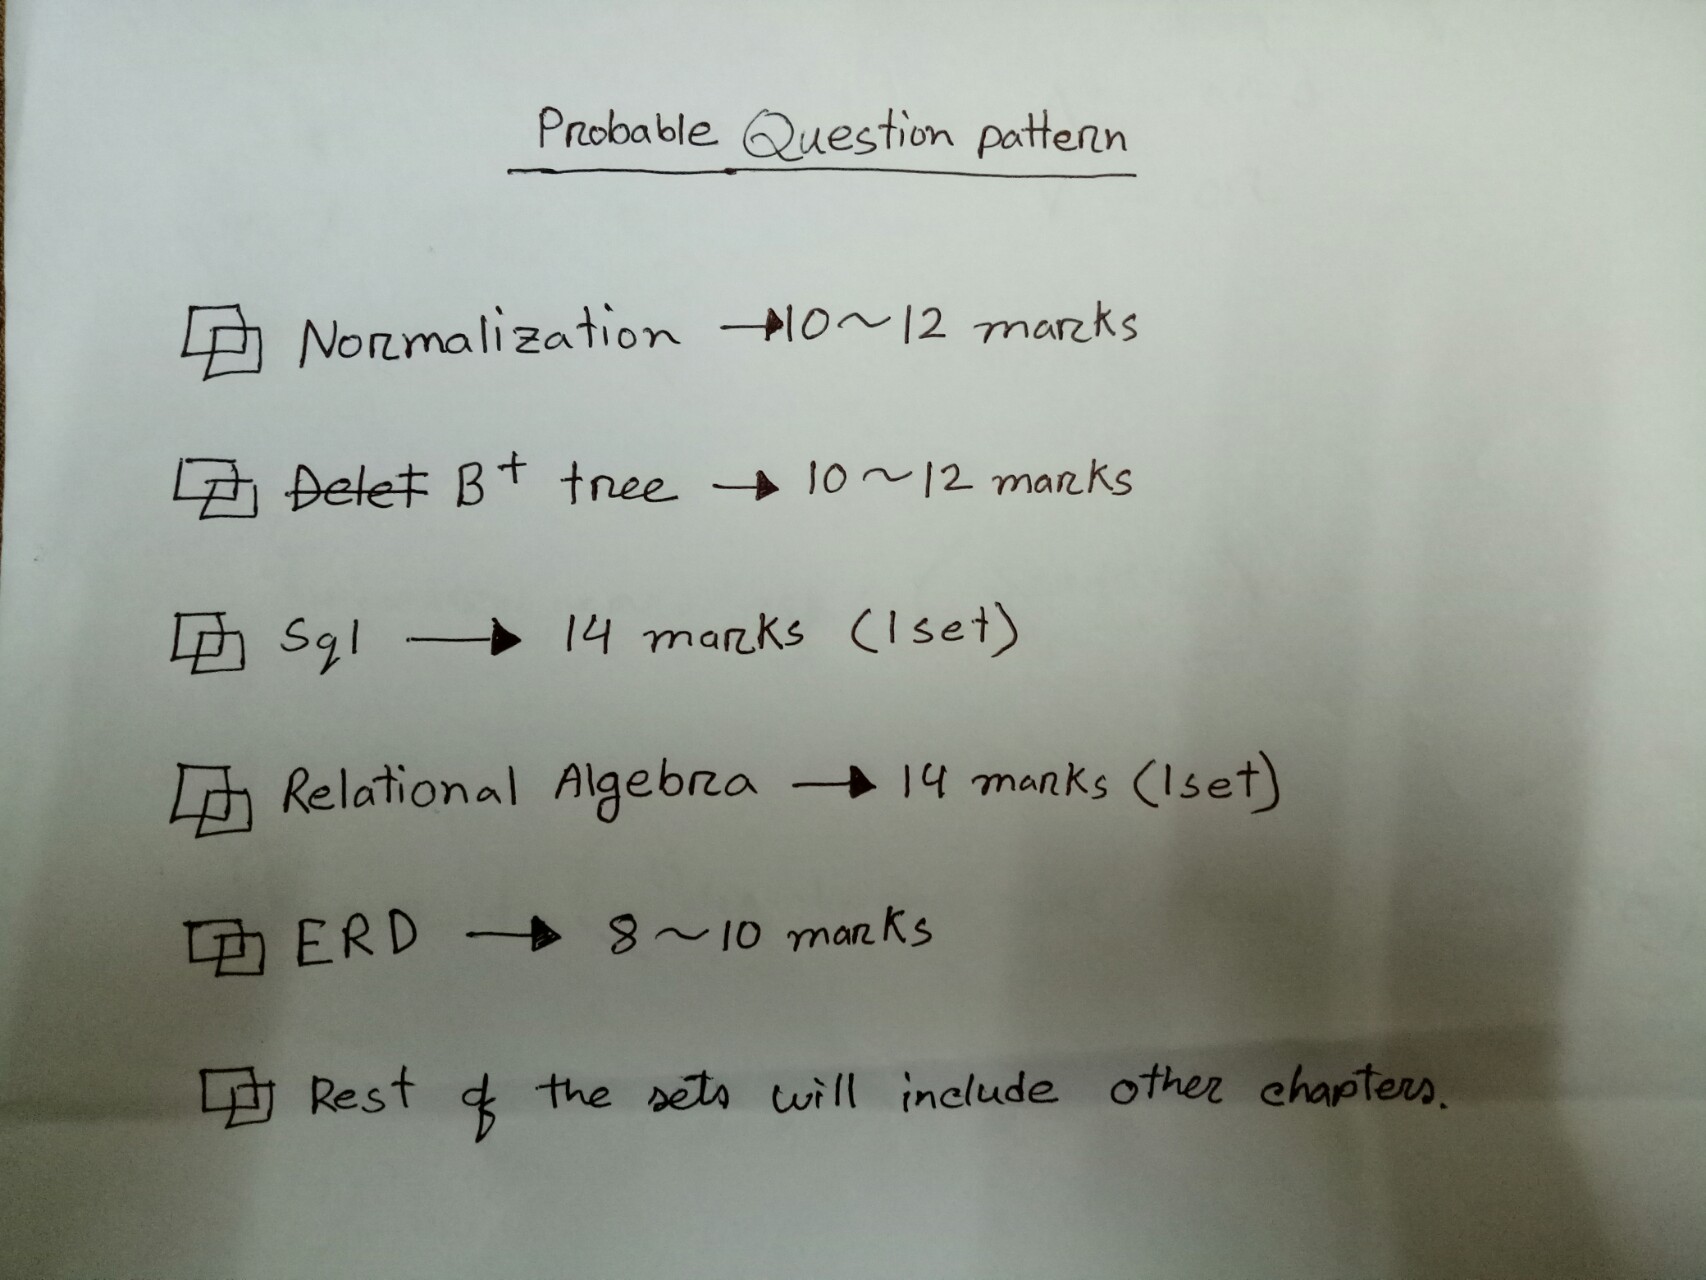 Probable Question pattern
Normalization → 10 ~ 12 marks
Delet B+ tree → 10 ~ 12 marks
Sql → 14 marks (1 set)
Relational Algebra → 14 marks (1 set)
ERD → 8 ~ 10 marks
Rest of the sets will include other chapters.